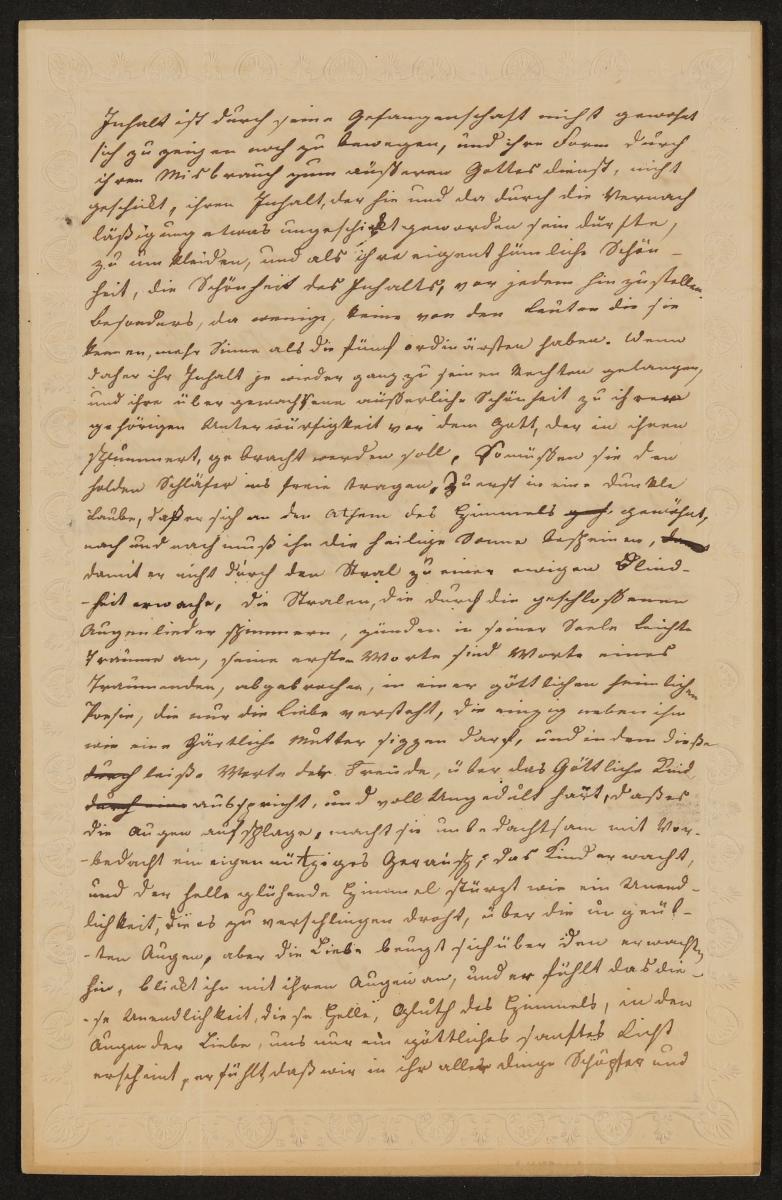 Inhalt ist durch seine Gefangenschaft nicht gewohnt
sich zu zeigen noch zu bewegen, und ihre Form durch
ihren Misbrauch zum äußeren Gottesdienst, nicht
geschickt, ihren Inhalt, der hie und da durch die Vernach
läßigung etwas ungeschickt geworden sein dürfte,
zu umkleiden, und als ihre eigenthümliche Schön-
heit, die Schönheit des Inhalts, vor jedem hinzustellen
besonders, da wenige, keine von den Leuten die sie
kennen, mehr Sinne als die fünf ordinärsten haben. Wenn
daher ihr Inhalt je wieder ganz zu seinen Rechten gelangen,
und ihre übergewachsene äußerliche Schönheit zu ihrer
gehörigen Unterwürfigkeit vor dem Gott, der in ihnen
schlummert, gebracht werden soll, so müssen sie den
holden Schläfer ins freie tragen, Zuerst in eine dunkle
Laube, daß er sich an den Athem des Himmels gewöhnt,
nach und nach muß ihn die heilige Sonne bescheinen,
damit er nicht durch den Stral zu einer ewigen Blind-
-heit erwache, die Stralen, die durch die geschloßenen
Augenlieder schimmern, zünden in seiner Seele leichte
Träume an, seine ersten Worte sind Worte eines
Träumenden, abgebrochen, in einer göttlichen heimlichen
Poesie, die nur die Liebe versteht, die einzig neben ihm
wie eine zärtliche Mutter sizzen darf, und indem diese
durch leise Worte der Freude, über das Göttliche Kind
durch eine ausspricht, und voll Ungedult harrt, daß es
die Augen aufschlage, macht sie unbedachtsam mit Vor-
-bedacht ein eigennütziges Geräusch; das Kind erwacht,
und der helle glühende Himmel stürzt wie ein Unend-
lichkeit, die es zu verschlingen droht, über die ungeüb-
-ten Augen, aber die Liebe beugt sich über den erwachten
hin, blickt ihn mit ihren Augen an, und er fühlt das die-
-se Unendlichkeit, diese Helle, Gluth des Himmels, in den
Augen der Liebe, uns nur ein göttliches sanftes Licht
erscheint, er fühlt, daß wir in ihr aller dinge Schöpfer und